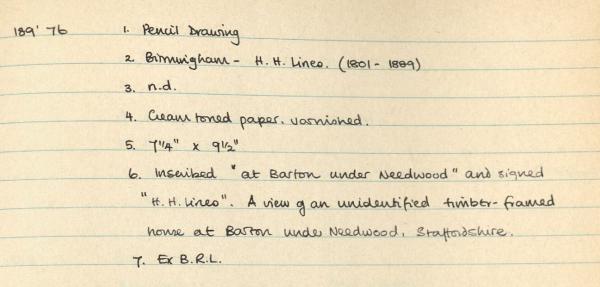 189'76 1. Pencil Drawing
2. Birmingham - H. H. Lines. (1801 - 1889)
3. n.d.
4. Cream toned paper. varnished.
5. 7 1/4" x 9 1/2"
6. Inscribed "at Barton under Needwood" and signed
"H. H. Lines". A view of an unidentified timber-framed
house at Barton under Needwood, Staffordshire.
7. Ex B.R.L.